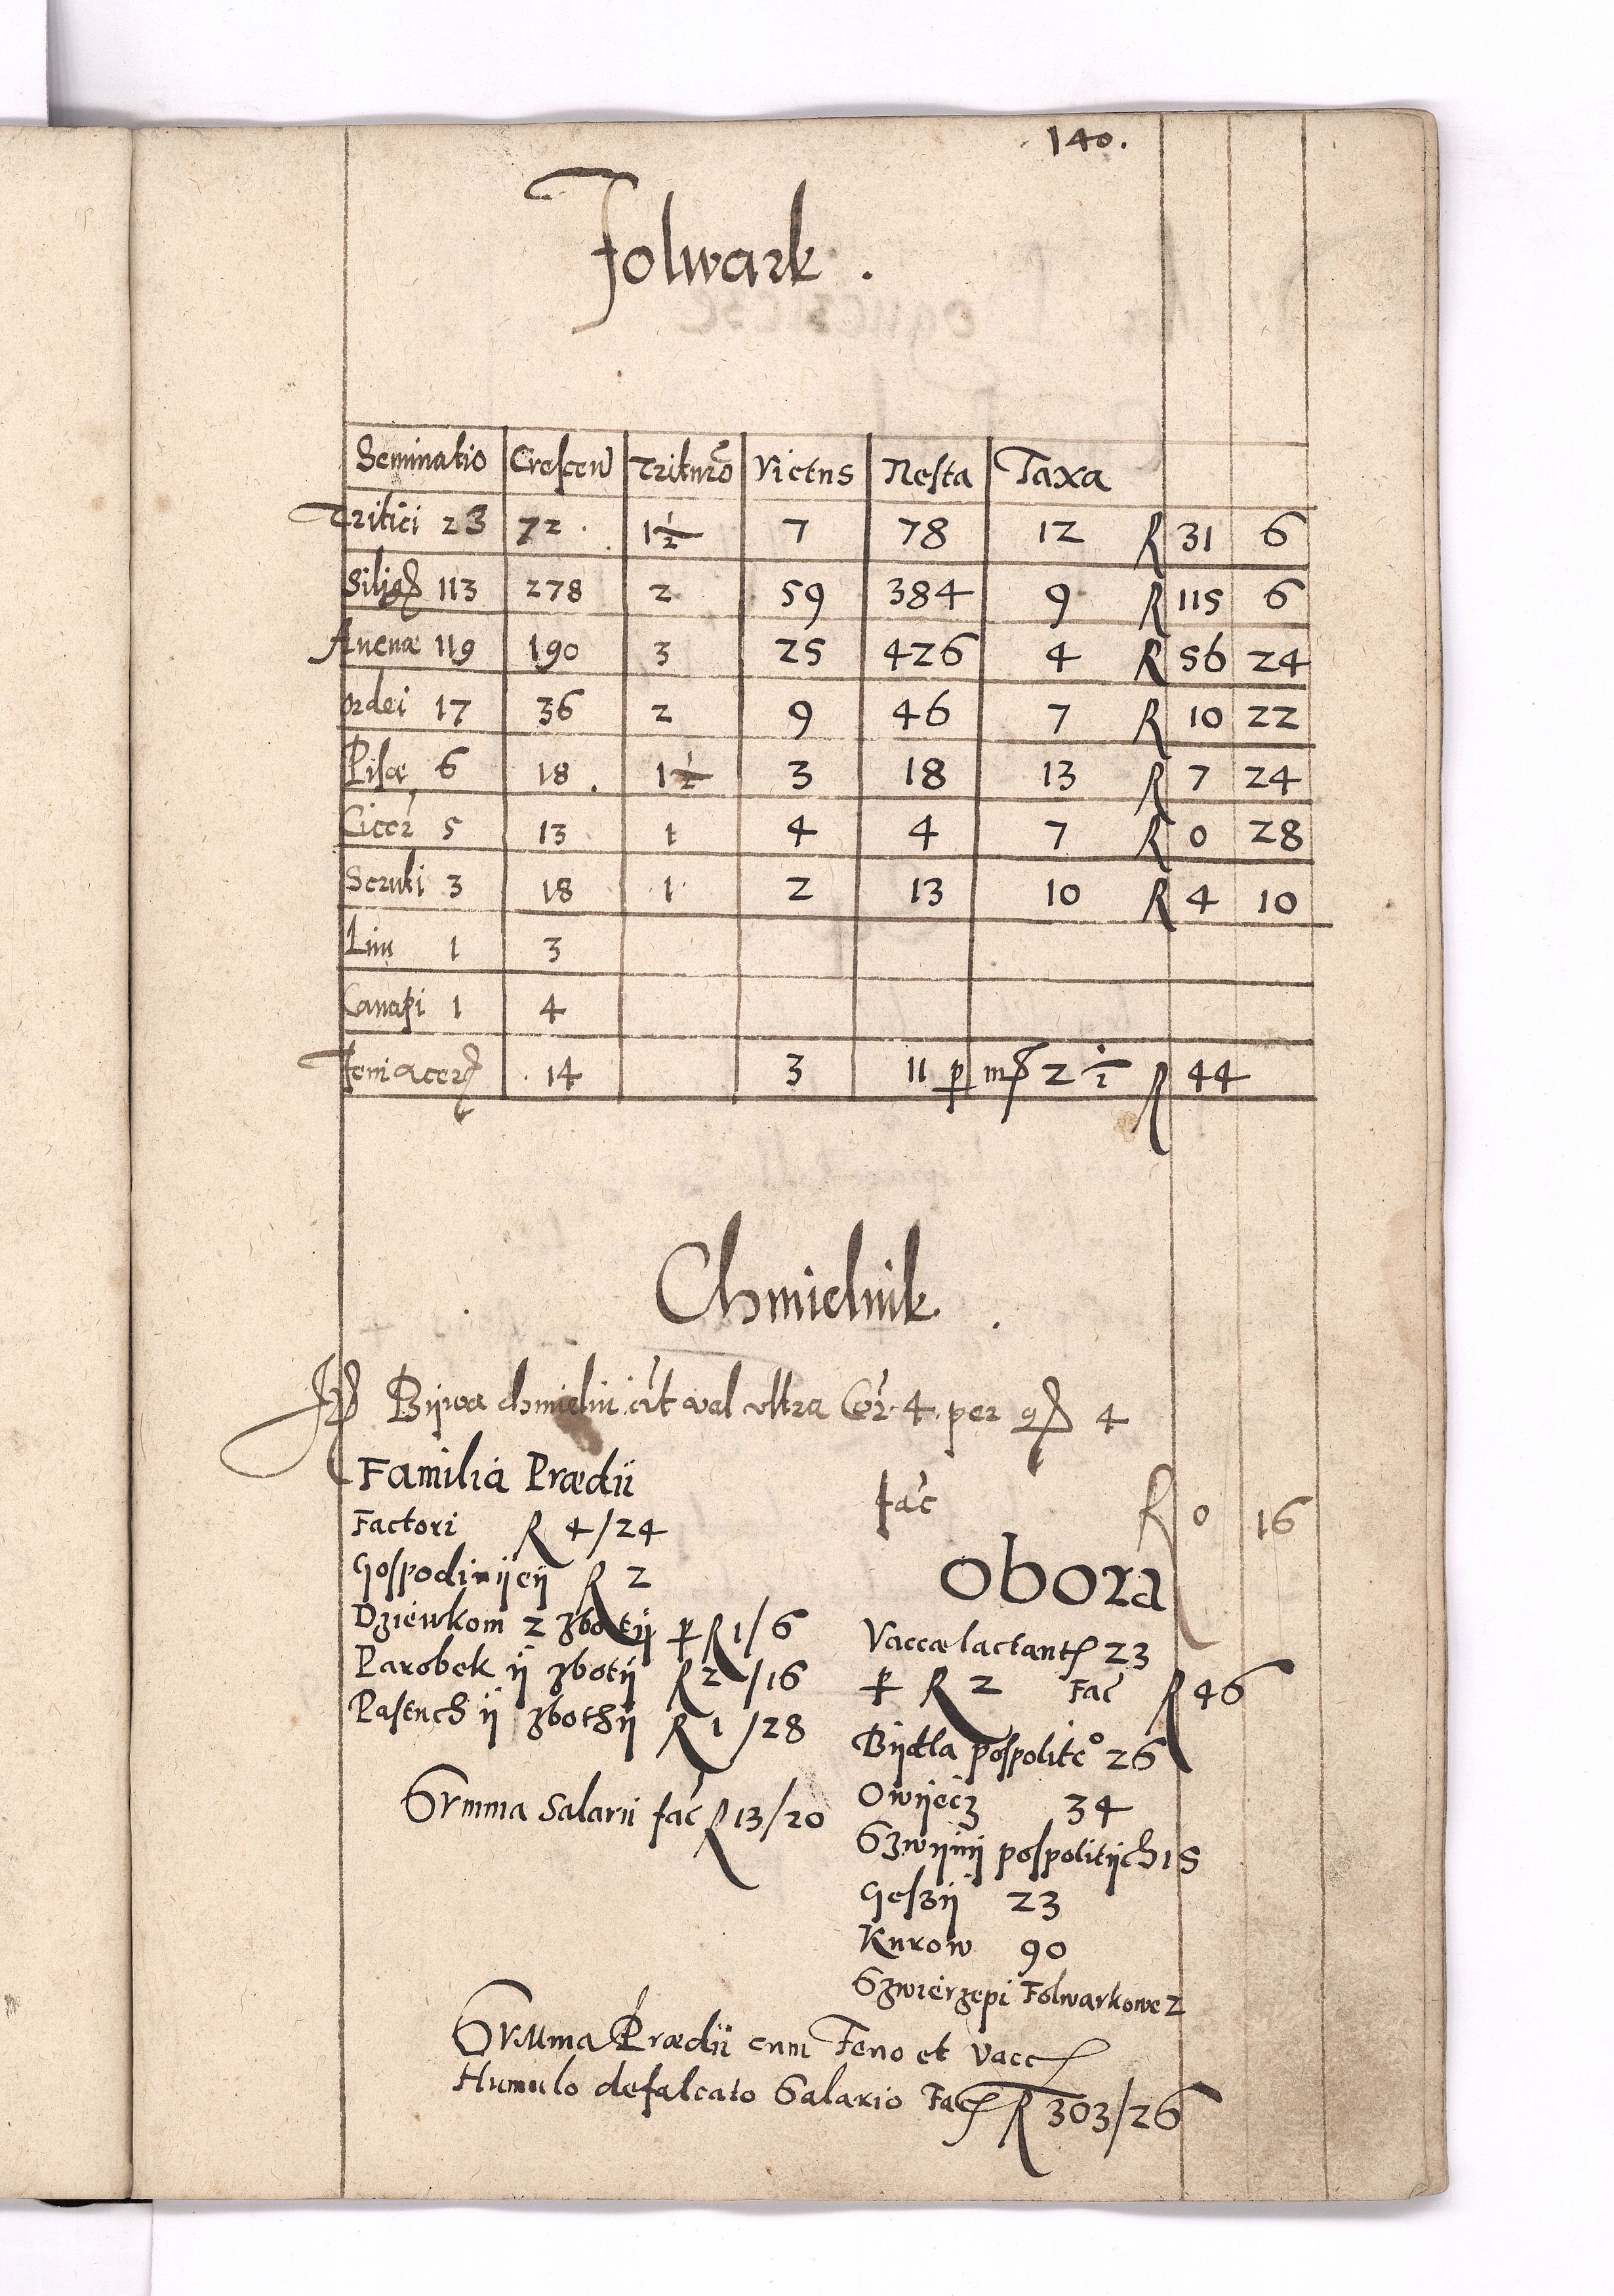 140.
Folwark.
Seminatio Crescen Trituro Victus Resta Taxa
Tritici 23 72 1½ 7 78 12 R 31 6
Silig 113 278 2 59 384 9 R 115 6
Auenæ 119 190 3 25 426 4 R 56 24
ordei 17 36 2 9 46 7 R 10 22
Pisæ 6 18 1½ 3 18 13 R 7 24
Cicer 5 13 1 4 4 7 R 0 28
3 18 1 2 13 10 R 4 10
Lini 1 3
Canapi 1 4
Feni acer 14 3 11 p 2½ R 44
Chmielnik.
Bijwa chmielui vel vltra Cor 4 per 4
fac R 0 16
Familia Prædii
Factori R 4/24
Gospodinijeij R 2
Dzieukom 2 zbotij p R 1/6
Parobek ij zbotij R 2/16
Pastuch ij zbothij R 1/28
Summa Salarii fac R 13/20
obora
Vaccæ lactant 23
p R 2 Fac R 46
Bijdla pospolite° 26
Owijecz 34
Szwijnij pospolitijch 15
Geszij 23
Kurow 90
Szwierzepi Folwarkowe 2
Summa Prædii cum Feno et Vacc
Humulo defalcato Salario Fac R 303/26